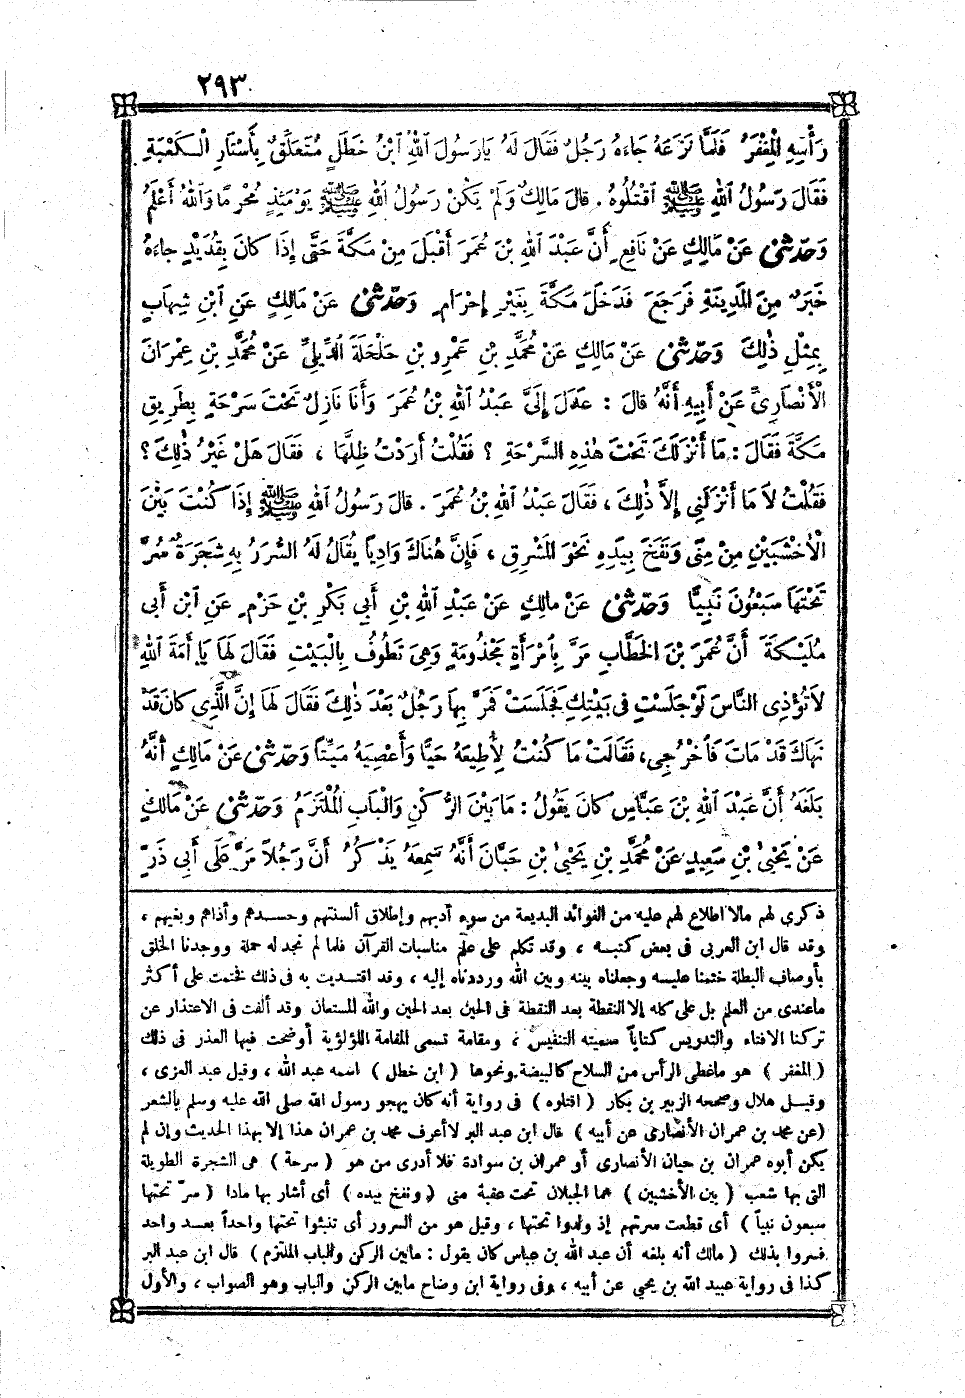 ٢٩٣
رَأْسِهِ الْمِغْفَرُ فَلَمَّا نَزَعَهُ جَاءَهُ رَجُلٌ فَقَالَ لَهُ يَارَسُولَ اللهِ ابْنُ خَطَلٍ مُتَعَلِّقٌ بِأَسْتَارِ الْكَعْبَةِ
فَقَالَ رَسُولُ اللهِ ﷺ اقْتُلُوهُ . قالَ مَالِكٌ وَلَمْ يَكُنْ رَسُولُ اللهِ ﷺ يَوْمَئِذٍ مُحْرِمًا وَاللهُ أَعْلَمُ
وَحَدَّثَنِى عَنْ مَالِكٍ عَنْ نَافِعٍ أَنَّ عَبْدَ اللهِ بْنَ عُمَرَ أَقْبَلَ مِنْ مَكَّةَ حَتَّى إِذَا كَانَ بِقُدَيْدٍ جاءَهُ
خَبَرٌ مِنَ الْمَدِينَةِ فَرَجَعَ فَدَخَلَ مَكَّةَ بِغَيْرِ إِحْرَامٍ وَحَدَّثَنِى عَنْ مَالِكٍ عَنِ ابْنِ شِهَابٍ
بِمِثْلِ ذٰلِكَ وَحَدَّثَنِى عَنْ مَالِكٍ عَنْ مُحَمَّدِ بْنِ عَمْرِو بْنِ حَلْحَلَةَ الدِّيلِيِّ عَنْ مُحَمَّدِ بْنِ عِمْرَانَ
الْأَنْصَارِيِّ عَنْ أَبِيهِ أَنَّهُ قالَ : عَدَلَ إِلَيَّ عَبْدُ اللهِ بْنُ عُمَرَ وَأَنَا نَازِلٌ تَحْتَ سَرْحَةٍ بِطَرِيقِ
مَكَّةَ فَقَالَ : مَا أَنْزَلَكَ تَحْتَ هٰذِهِ السَّرْحَةِ ؟ فَقُلْتُ أَرَدْتُ ظِلَّهَا ، فَقَالَ هَلْ غَيْرُ ذٰلِكَ ؟
فَقُلْتُ لاَ مَا أَنْزَلَنِي إِلاَّ ذٰلِكَ ، فَقَالَ عَبْدُ اللهِ بْنُ عُمَرَ . قالَ رَسُولُ اللهِ ﷺ إِذَا كُنْتَ بَيْنَ
الْأَخْشَبَيْنِ مِنْ مِنًى وَنَفَخَ بِيَدِهِ نَحْوَ الْمَشْرِقِ ، فَإِنَّ هُنَاكَ وَادِياً يُقَالُ لَهُ السُّرَرُ بِهِ شَجَرَةٌ سُرَّ
تَحْتَهَا سَبْعُونَ نَبِيًّا وَحَدَّثَنِى عَنْ مالِكٍ عَنْ عَبْدِ اللهِ بْنِ أَبِي بَكْرِ بْنِ حَزْمٍ عَنِ ابْنِ أَبى
مُلَيْكَةَ أَنَّ عُمَرَ بْنَ الْخَطَّابِ مَرَّ بِامْرَأَةٍ مَجْذُومَةٍ وَهِيَ تَطُوفُ بِالْبَيْتِ فَقَالَ لَهَا يَا أَمَةَ اللهِ
لاَ تُؤْذِى النَّاسَ لَوْ جَلَسْتِ فى بَيْتِكِ فَجَلَسَتْ فَمَرَّ بِهَا رَجُلٌ بَعْدَ ذٰلِكَ فَقَالَ لَهَا إِنَّ الَّذِى كانَ قَدْ
نَهَاكَ قَدْ مَاتَ فَاخْرُجِى، فَقَالَتْ مَا كُنْتُ لِأُطِيعَهُ حَيًّا وَأَعْصِيَهُ مَيِّتاً وَحَدَّثَنِى عَنْ مَالِكٍ أَنَّهُ
بَلَغَهُ أَنَّ عَبْدَ اللهِ بْنَ عَبَّاسٍ كانَ يَقُولُ : مَا بَيْنَ الرُّكْنِ وَالْبَابِ الْمُلْتَزَمُ وَحَدَّثَنِى عَنْ مَالِكٍ
عَنْ يَحْيىٰ بْنِ سَعِيدٍ عَنْ مُحَمَّدِ بْنِ يَحْيىٰ بْنِ حَبَّانَ أَنَّهُ سَمِعَهُ يَذْكُرُ أَنَّ رَجُلاً مَرَّ عَلَى أَبِي ذَرٍّ
ذكرى لهم مالا اطلاع لهم عليه من الفوائد البديعة من سوء أدبهم وإطلاق ألسنتهم وحسدهم وأذاهم وبغيهم ،
وقد قال ابن العربى فى بعض كتبه ، وقد تكلم على علم مناسبات القرآن فلما لم نجد له حملة ووجدنا الخلق
بأوصاف البطلة ختمنا عليه وجعلناه بيننا وبين الله ورددناه إليه ، وقد اقتديت به فى ذلك فختمت على أكثر
ماعندى من العلم بل على كله إلا النقطة بعد النقطة فى الحين بعد الحين والله المستعان وقد ألفت فى الاعتذار عن
تركنا الافتاء والتدريس كتاباً سميته التنفيس ، ومقامة تسمى المقامة اللؤلؤية أوضحت فيها العذر فى ذلك
( المغفر ) هو ماغطى الرأس من السلاح كالبيضة ونحوها ( ابن خطل ) اسمه عبد الله ، وقيل عبد العزى ،
وقيل هلال وصححه الزبير بن بكار ( اقتلوه ) فى رواية أنه كان يهجو رسول الله صلى الله عليه وسلم بالشعر
(عن محمد بن عمران الأنصارى عن أبيه ) قال ابن عبد البر لاأعرف محمد بن عمران هذا إلا بهذا الحديث وإن لم
يكن أبوه عمران بن حيان الأنصارى أو عمران بن سوادة فلا أدرى من هو ( سرحة ) هى الشجرة الطويلة
التى بها شعب ( بين الأخشبين ) هما الجبلان تحت عقبة منى ( ونفخ بيده ) أى أشار بها مادا ( سرّ تحتها
سبعون نبياً ) أى قطعت سرتهم إذ ولدوا تحتها ، وقيل هو من السرور أى تنبئوا تحتها واحداً بعد واحد
فسروا بذلك ( مالك أنه بلغه أن عبد الله بن عباس كان يقول : مابين الركن والباب الملتزم ) قال ابن عبد البر
كذا فى رواية عبيد الله بن يحيى عن أبيه ، وفى رواية ابن وضاح مابين الركن والباب وهو الصواب ، والأول